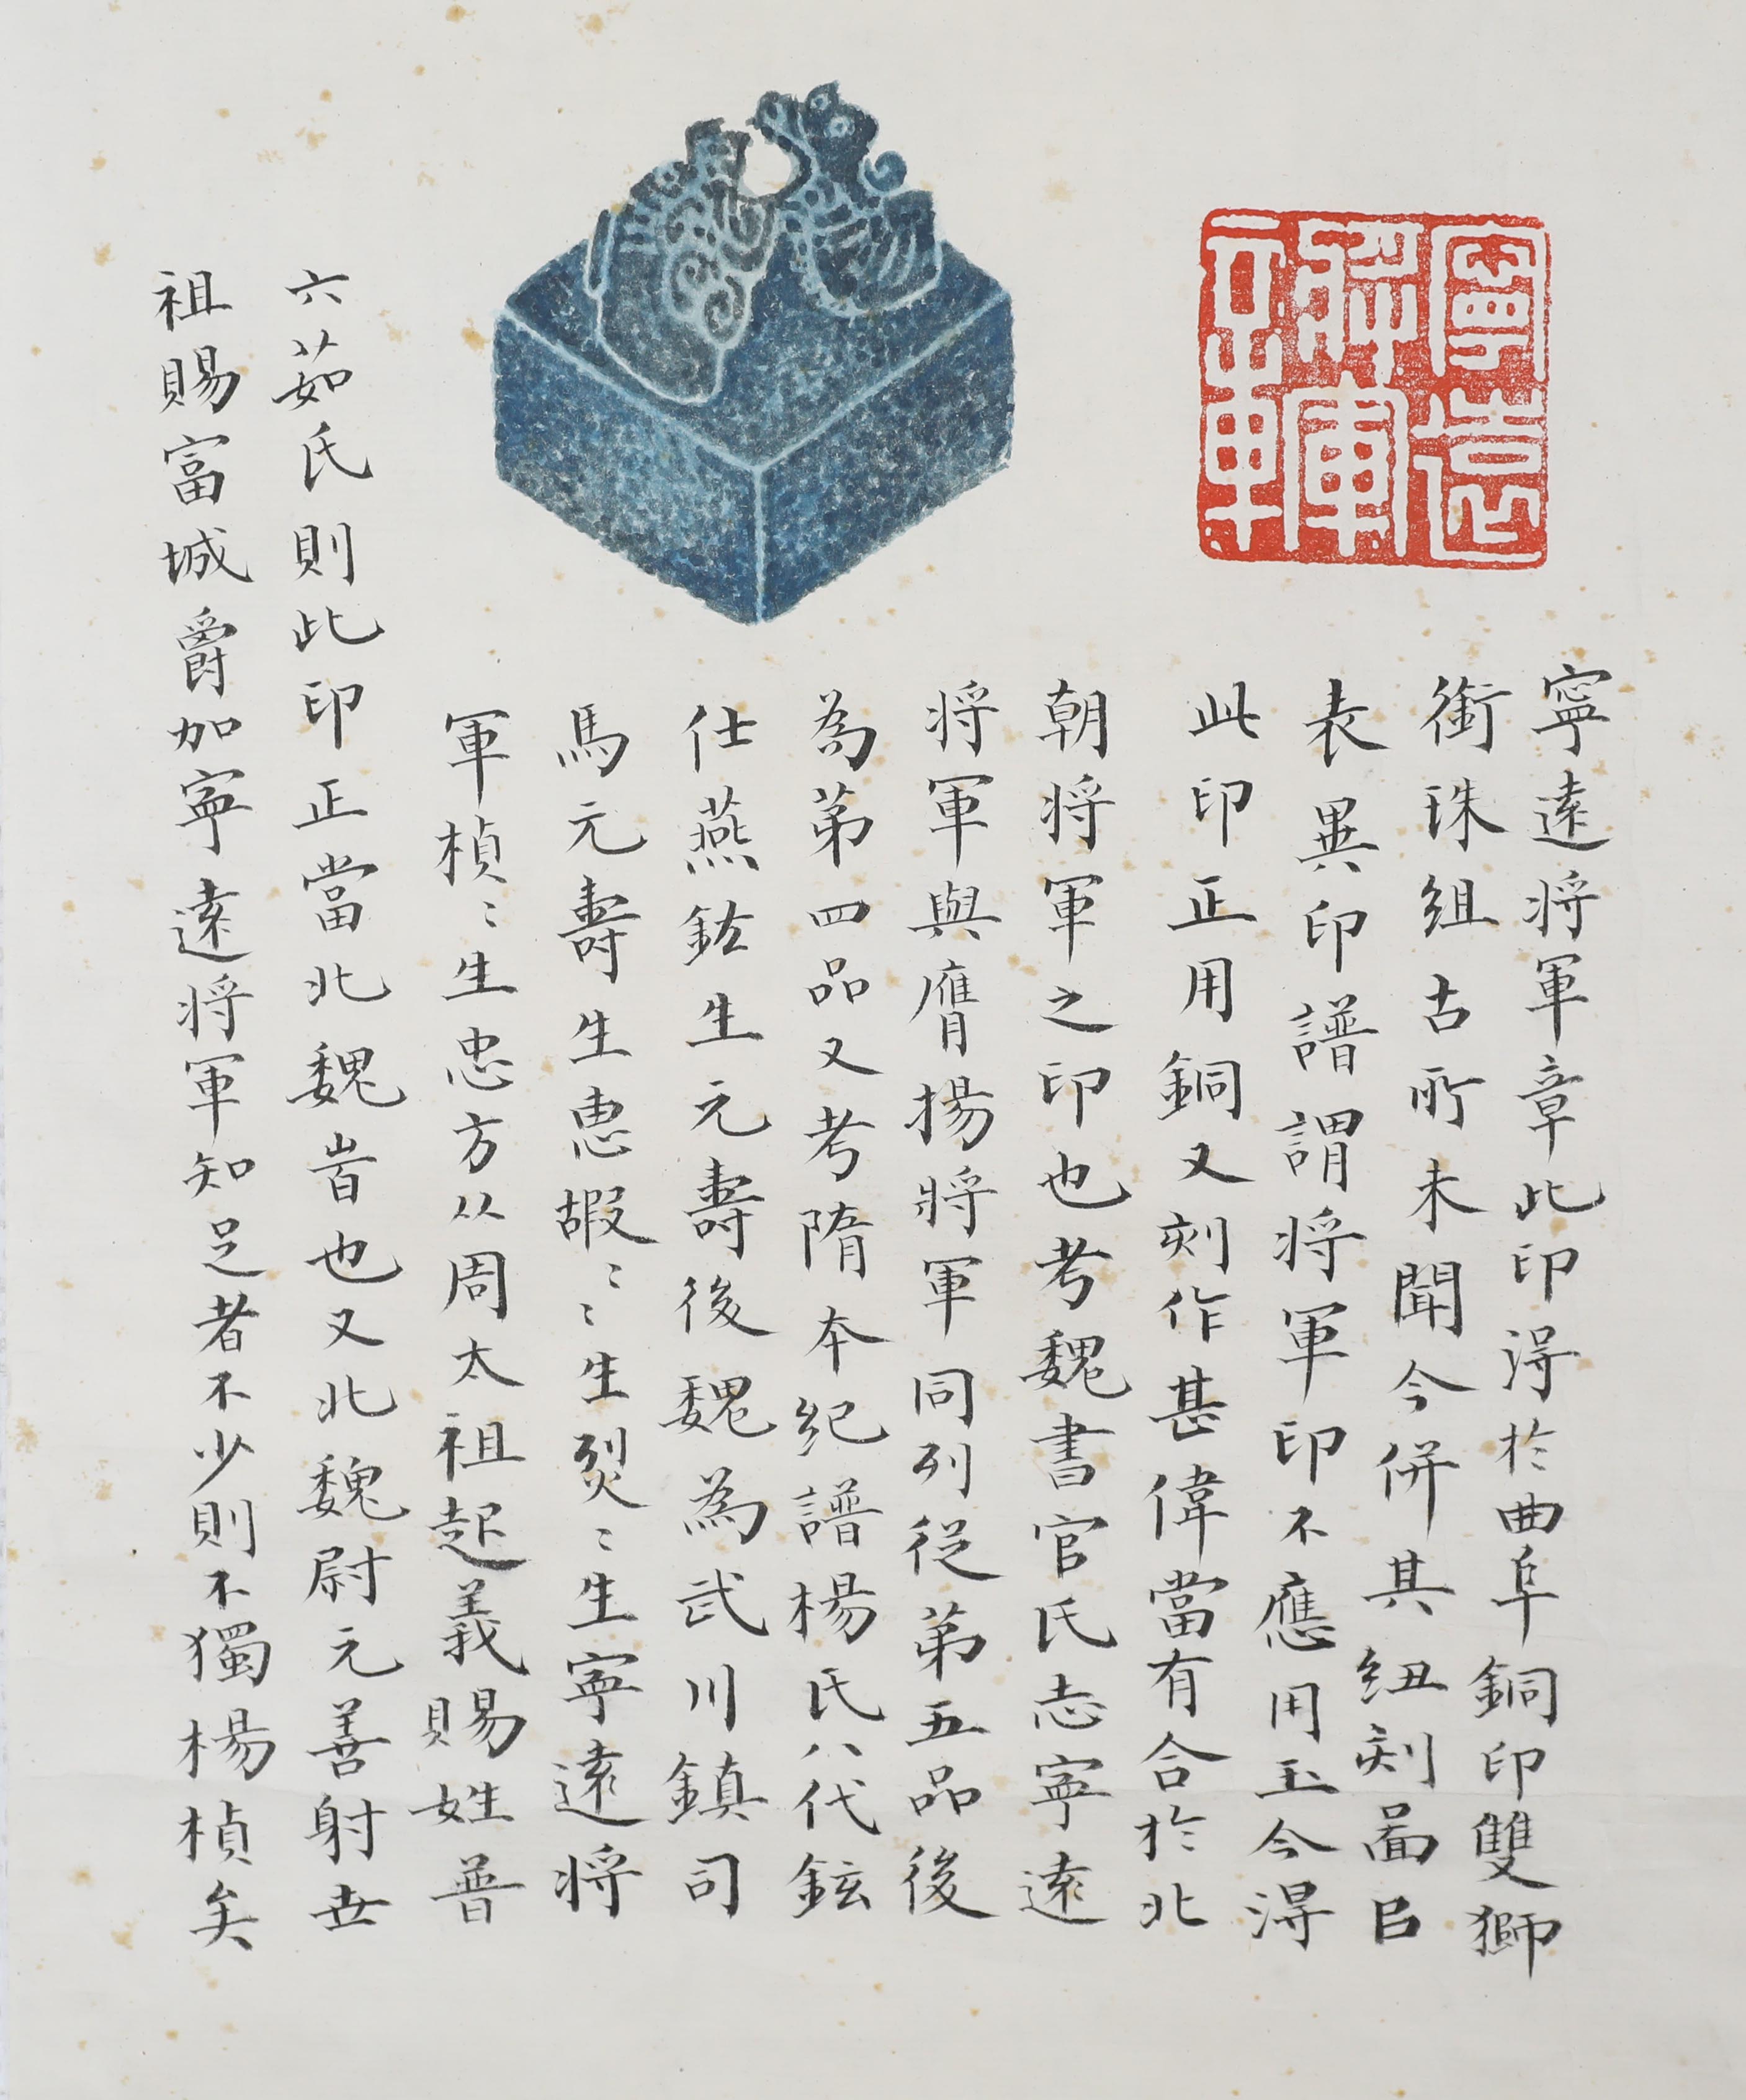 寧遠
將軍
章
寧遠将軍章此印淂於曲阜銅印雙獅
銜珠組古所未聞今併其紐刻啚㠯
表異印譜謂将軍印不應用玉今淂
此印正用銅又刻作甚偉當有合於北
朝将軍之印也考魏書官氏志寧遠
将軍與膺揚將軍同列從第五品後
為第四品又考隋本紀譜楊氏八代鉉
仕燕鉉生元壽後魏為武川鎮司
馬元壽生惠嘏〻〻生烈〻生寧遠将
軍楨〻生忠方从周太祖起義賜姓普
六茹氏則此印正當北魏旹也又北魏尉元善射世
祖賜富城爵加寧遠将軍知足者不少則不獨楊楨矣